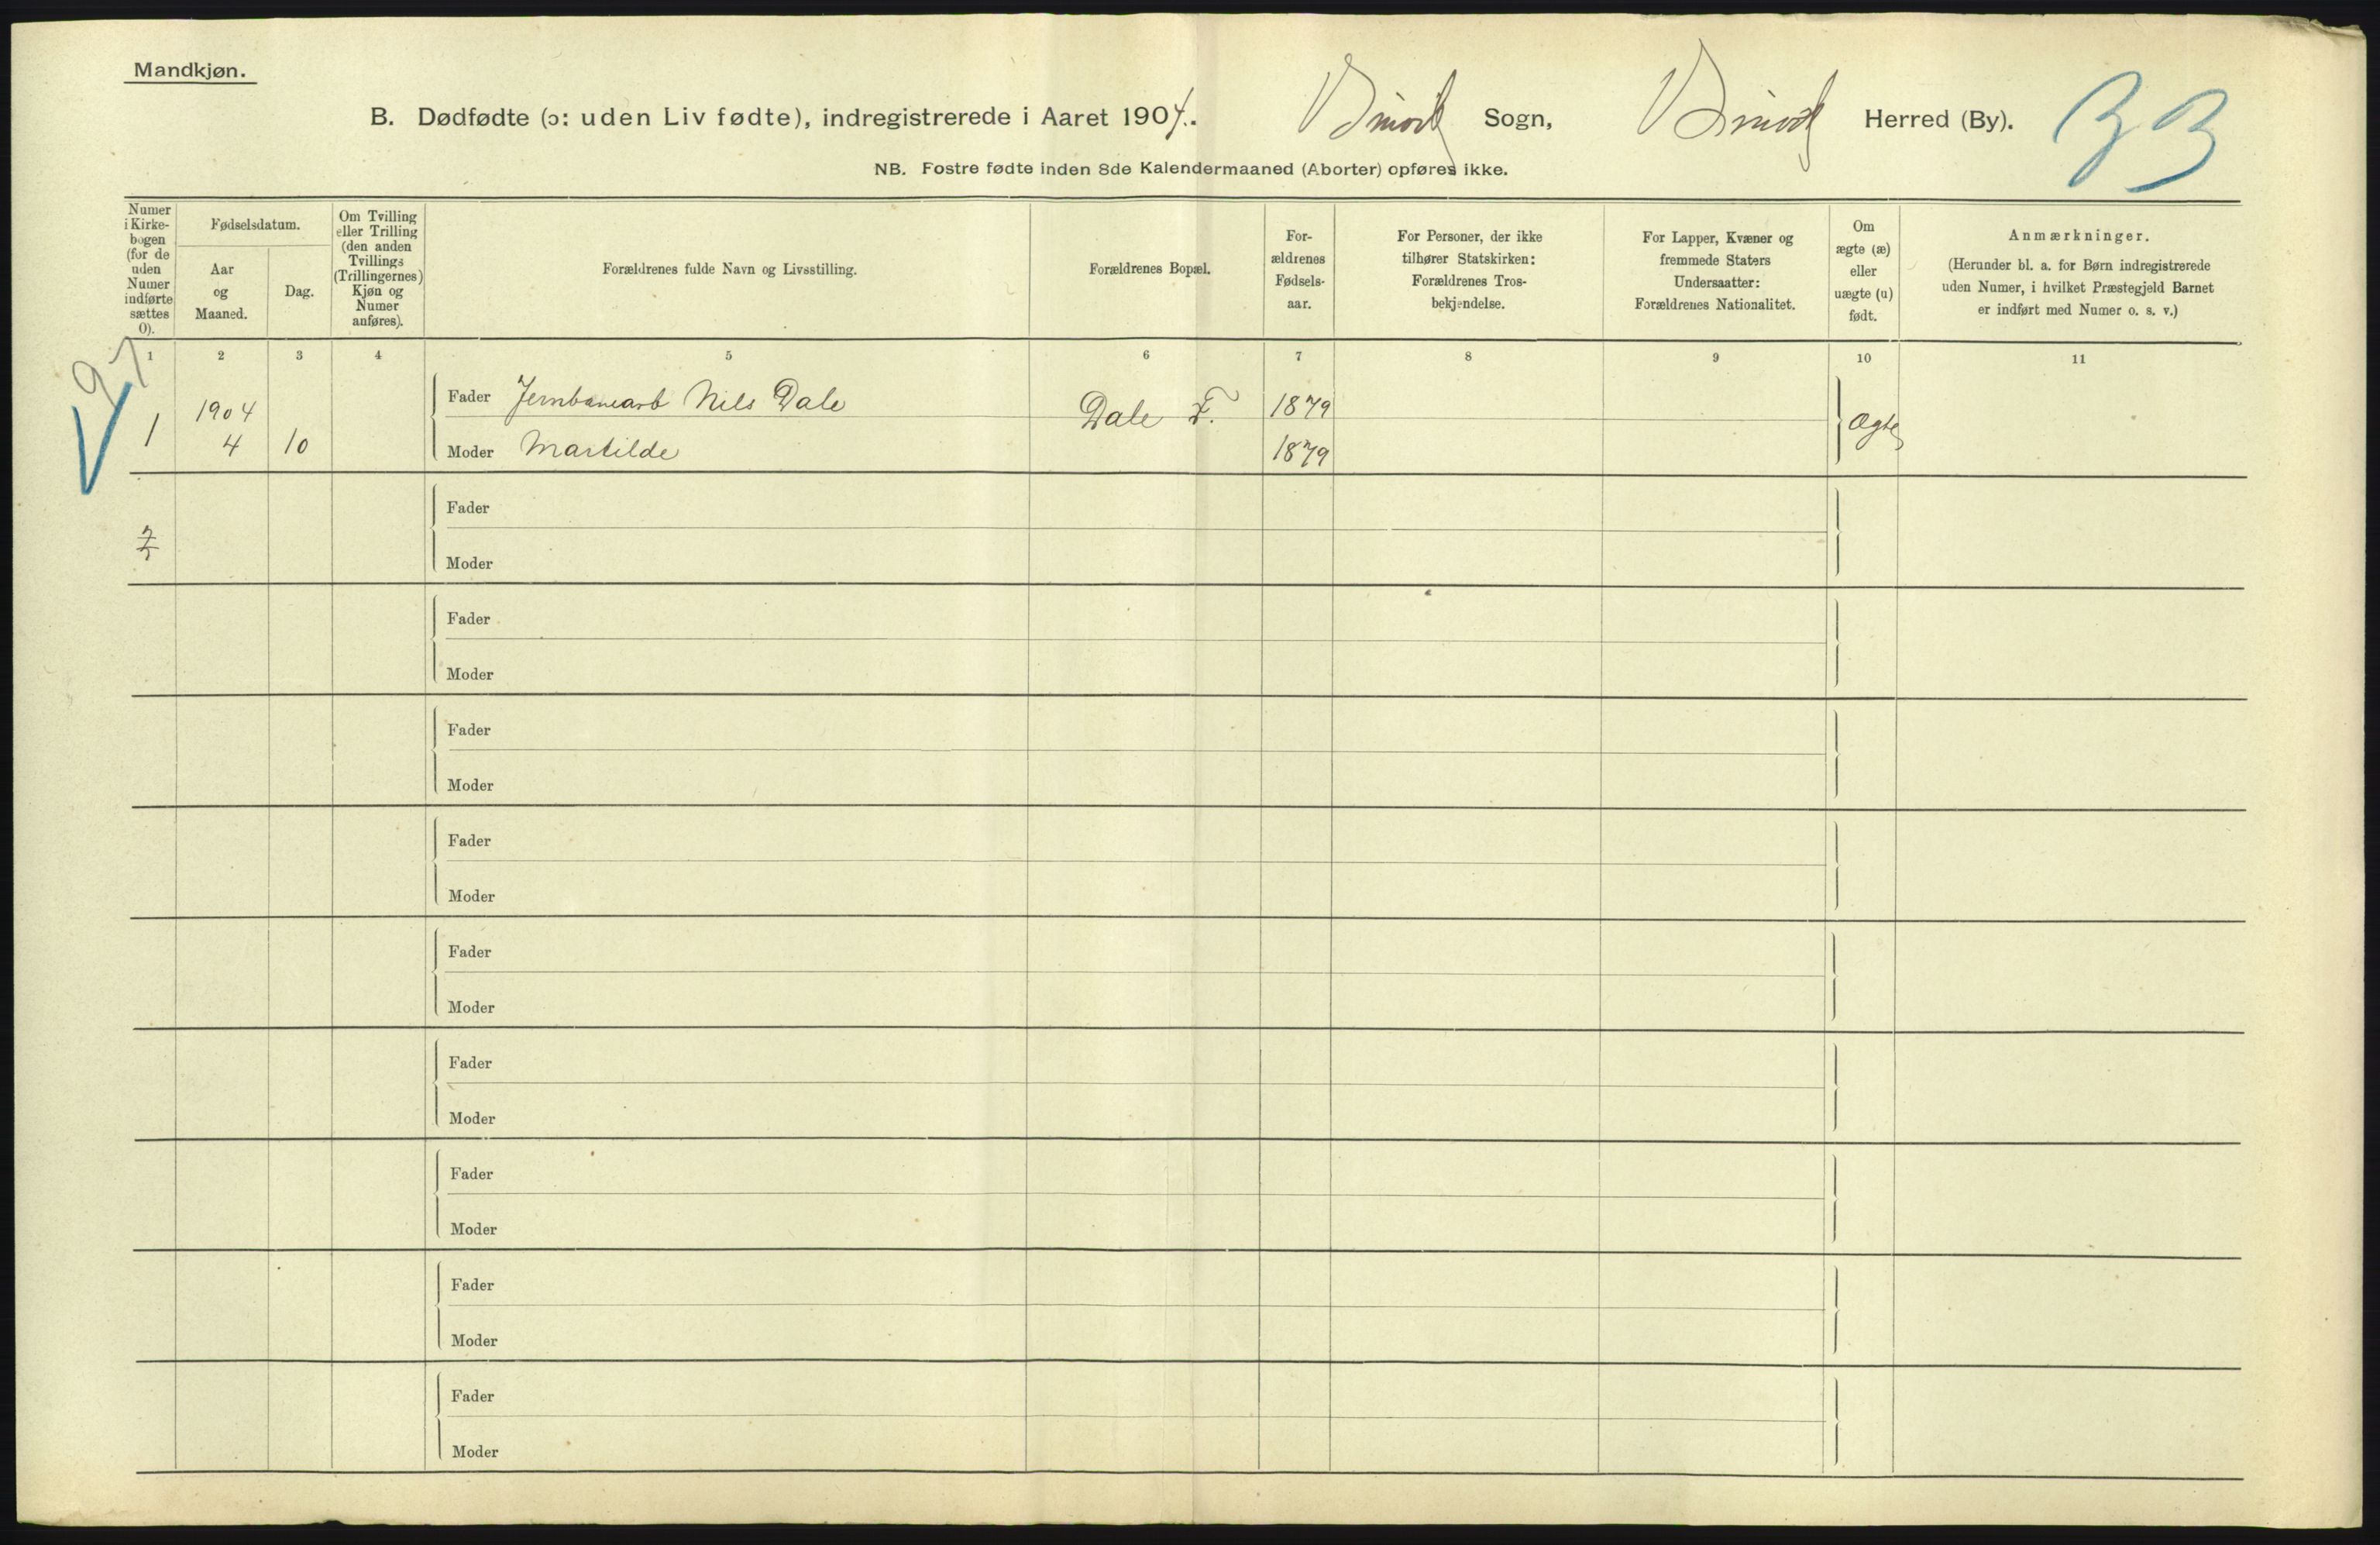 Mandkjøn.
B. Dødfødte (ɔ: uden Liv fødte), indregistrerede i Aaret 1904. Sogn, Herred (By).
NB. Fostre fødte inden 8de Kalendermaaned (Aborter) opføres ikke.
Numer i Kirkebogen (for de uden Numer indførte sættes 0).
Fødselsdatum.
Aar og Maaned.
Dag.
Om Tvilling eller Trilling (den anden Tvillings (Trillingernes) Kjøn og Numer anføres).
Forældrenes fulde Navn og Livsstilling.
Forældrenes Bopæl.
For-
ældrenes
Fødsels-
aar.
For Personer, der ikke
tilhører Statskirken:
Forældrenes Tros-
bekjendelse.
For Lapper, Kvæner og
fremmede Staters
Undersaatter:
Forældrenes Nationalitet.
Om
ægte (æ)
eller
uægte (u)
født.
Anmærkninger.
(Herunder bl. a. for Børn indregistrerede
uden Numer, i hvilket Præstegjeld Barnet
er indført med Numer o. s. v.)
1 2 3 4 5 6 7 8 9 10 11
1 1904 4 10
Fader Jernbanearb Nils Dale Dale F. 1879 Ægte
Moder Martilde 1879
Fader
Moder
Fader
Moder
Fader
Moder
Fader
Moder
Fader
Moder
Fader
Moder
Fader
Moder
Fader
Moder
Fader
Moder